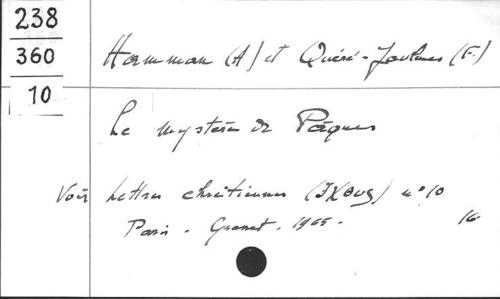 238
360
10
Hamman (A) et Quéré-Jaulmes (F.)
Le mystère de Pâques
Voir Lettres chrétiennes (IXOUS) n° 10
Paris - Grasset - 1965 -
16